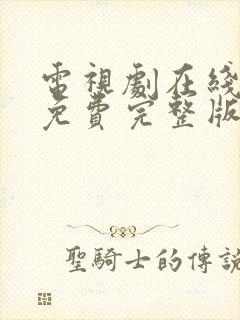 電視劇在綫
免費完整版
聖騎士的傳說